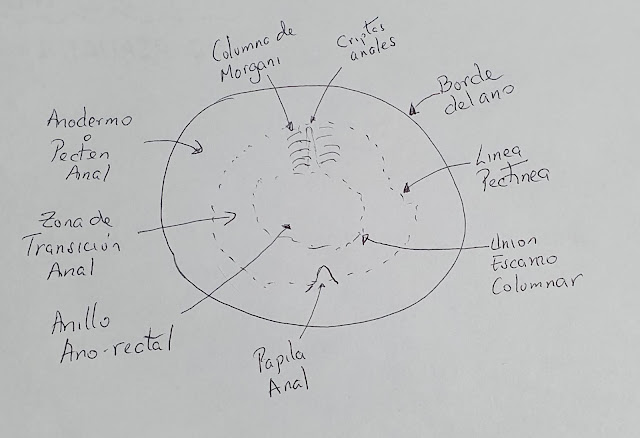 Columna de
Morgani
Criptas
anales
Borde
del ano
Anodermo
o
Pecten
Anal
Linea
Pectinea
Zona de
Transición
Anal
Union
Escamo
Columnar
Anillo
Ano-rectal
Papila
Anal